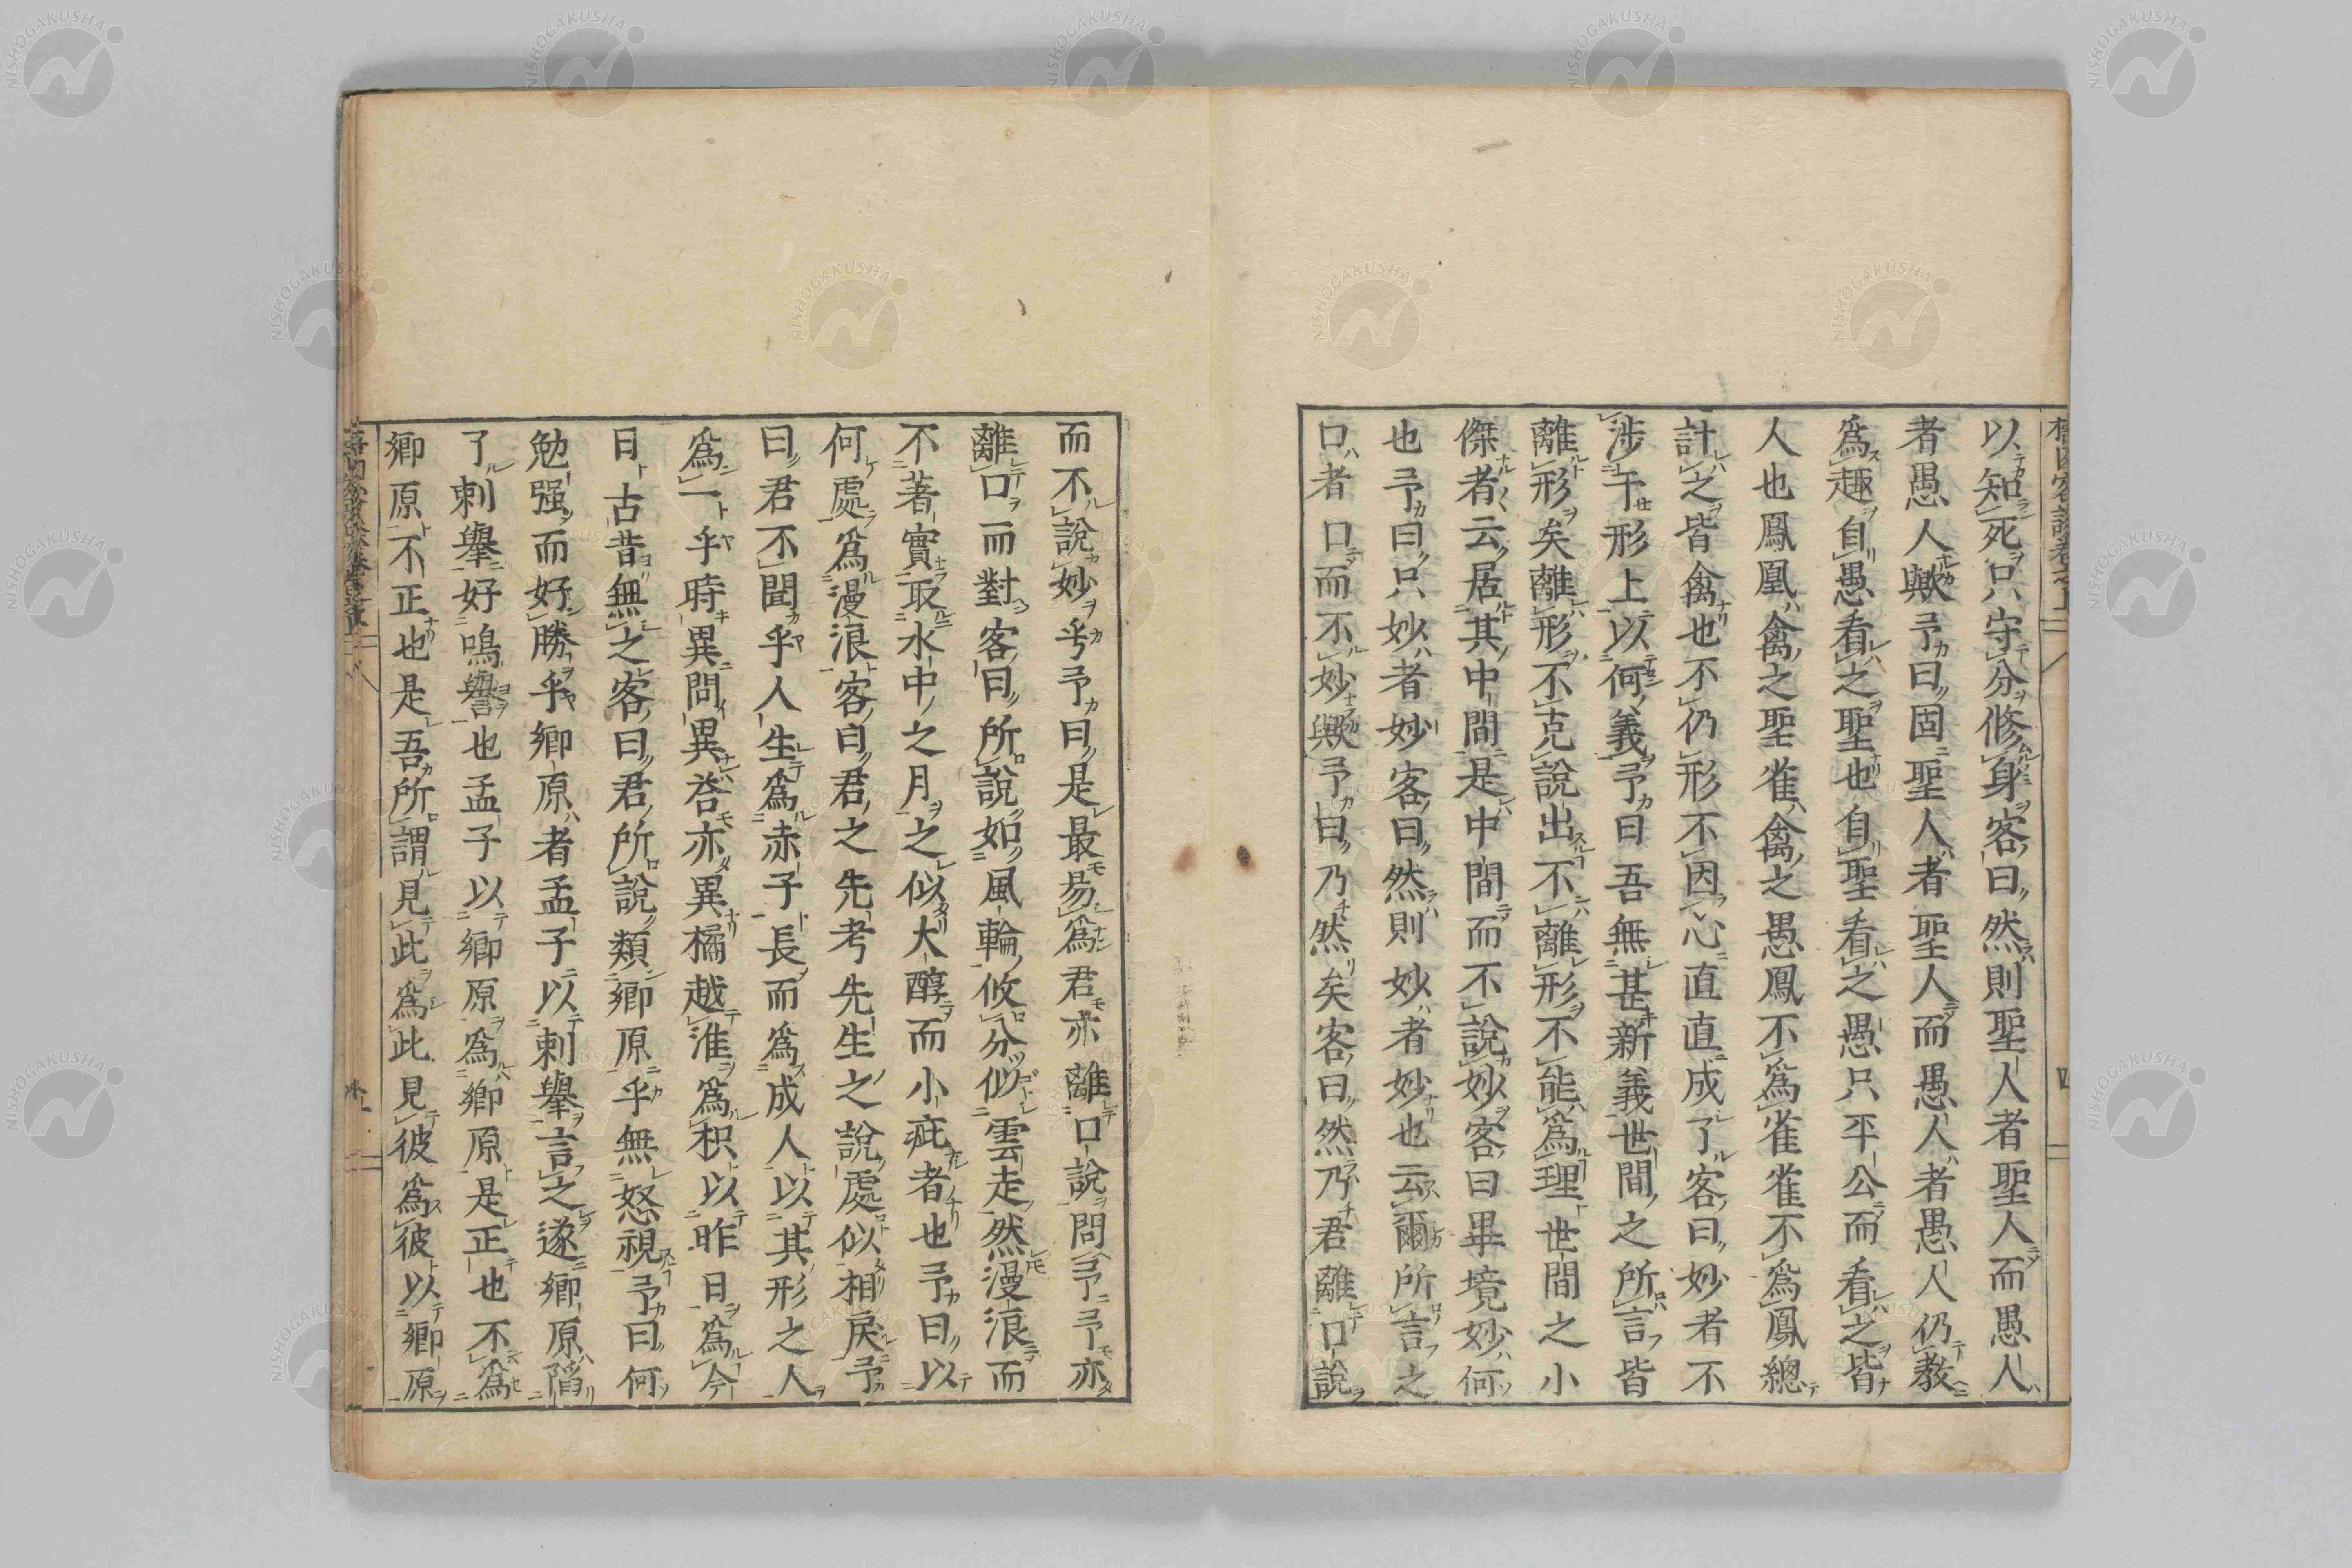 以知死只守分修身客曰然則聖人者聖人而愚人
者愚人歟予曰固聖人者聖人而愚人者愚人仍教
為趣自愚看之聖也自聖看之愚只平公而看之皆
人也鳳凰禽之聖雀禽之愚鳳不為雀雀不為鳳總
計之皆禽也不仍形不因心直直成了客曰妙者不
涉于形上以何義予曰吾無甚新義世間之所言皆
離形矣離形不克說出不離形不能為理世間之小
傑者云居其中間是中間而不說妙客曰畢竟妙何
也予曰只妙者妙客曰然則妙者妙也云爾所言之
口者口而不妙歟予曰乃然矣客曰然乃君離口說
而不說妙乎予曰是最易為君亦離口說問予予亦
離口而對客曰所說如風輪攸分似雲走然漫浪而
不著實取水中之月之似大醇而小疵者也予曰以
何處為漫浪客曰君之先考先生之說處似相戾予
曰君不聞乎人生為赤子長而為成人以其形之人
為一乎時異問異荅亦異橘越淮為枳以昨日為今
日古昔無之客曰君所說類鄉原乎無怒視予曰何
勉强而好勝乎鄉原者孟子以剌舉言之遂鄉原陷
了剌舉好鳴譽也孟子以鄉原為鄉原是正也不為
鄉原不正也是吾所謂見此為此見彼為彼以鄉原
四
NISHOGAKUSHA